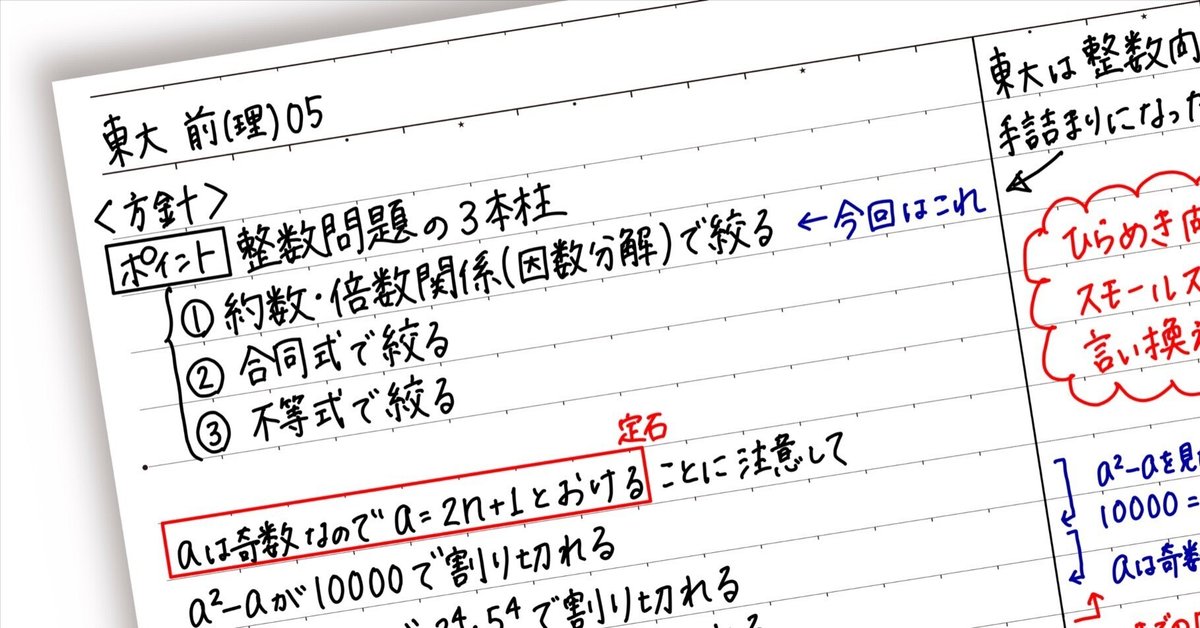 東大 前(理)05
<方針>
ポイント 整数問題の3本柱
① 約数・倍数関係(因数分解)で絞る ←今回はこれ
② 合同式で絞る
③ 不等式で絞る
定石
aは奇数なので a=2n+1とおける ことに注意して
a²-aが10000で割り切れる
2⁴・5⁴で割り切れる
東大は整数
手詰まりになった
ひらめき
スモールス
言い換え
a²-aを見
10000=
aは奇数